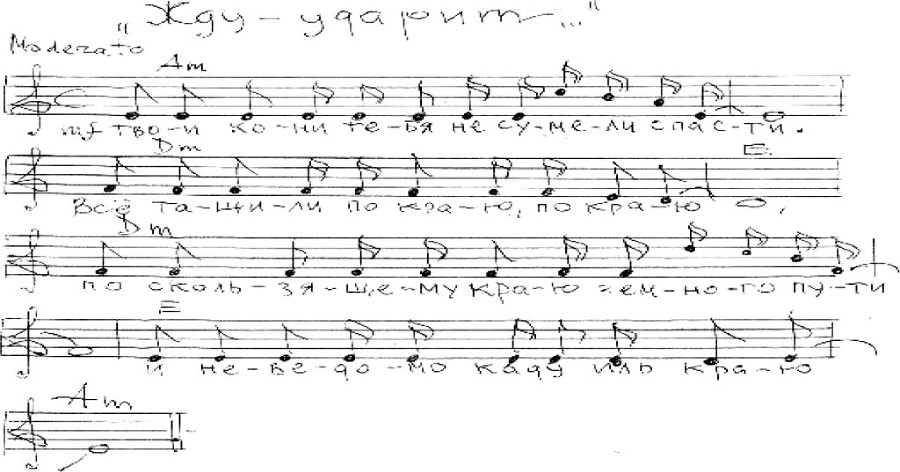 „Жду - ударит..."
Moderato
Am
тя тво-и ко-ни те-бя не су-ме-ли спас-ти.
Dm E
Всё та-щи-ли по кра-ю, по кра-ю,
Dm
по сколь-зя-ще-му краю зем-но-го пу-ти
E
и не-ве-до-мо каду иль кра-ю
Am